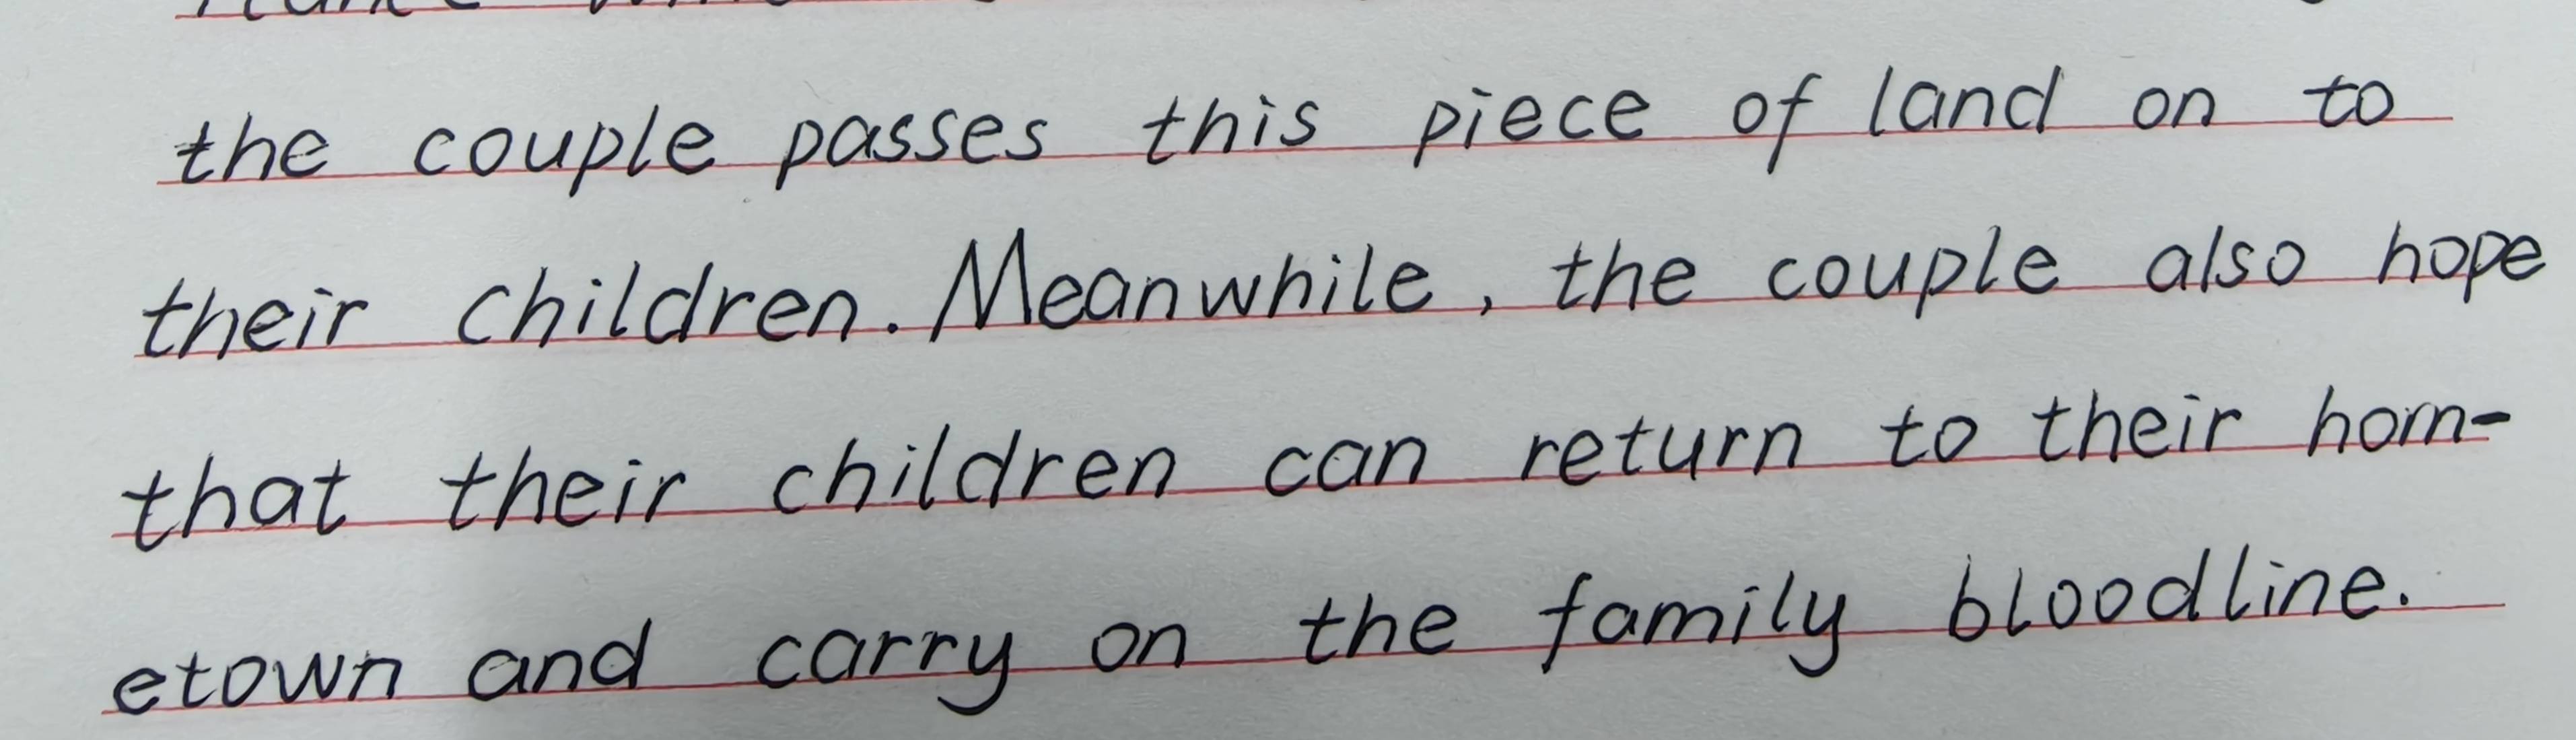 the couple passes this piece of land on to
their children. Meanwhile, the couple also hope
that their children can return to their hom-
etown and carry on the family bloodline.